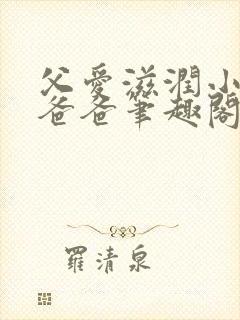 父愛滋潤小
爸爸筆趣閣
羅清泉